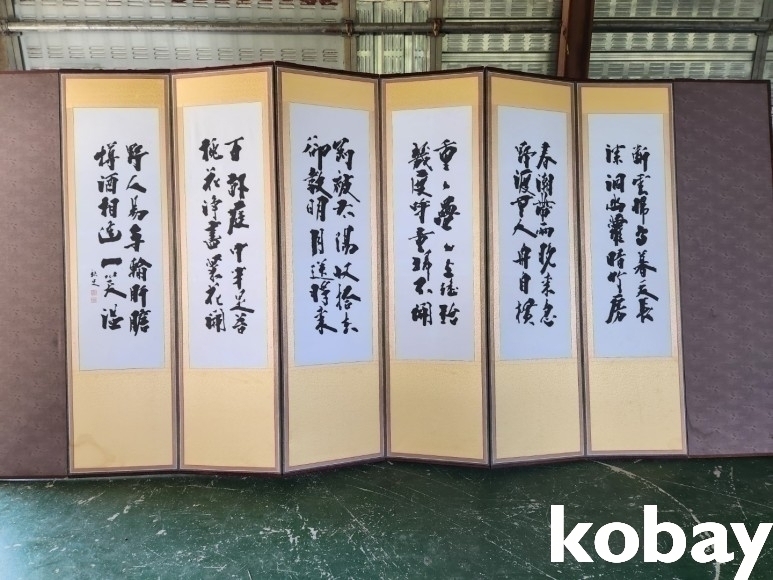 斷雲歸鳥暮天長
深洞幽蘿暗竹房
春潮帶雨晚來急
野渡無人舟自橫
重々疊々上瑤臺
幾度呼童掃不開
剛被太陽收拾去
却敎明月送將來
百畝庭中半是苔
桃花淨盡菜花開
野人易與輸肝膽
樽酒相逢一笑溫
kobay